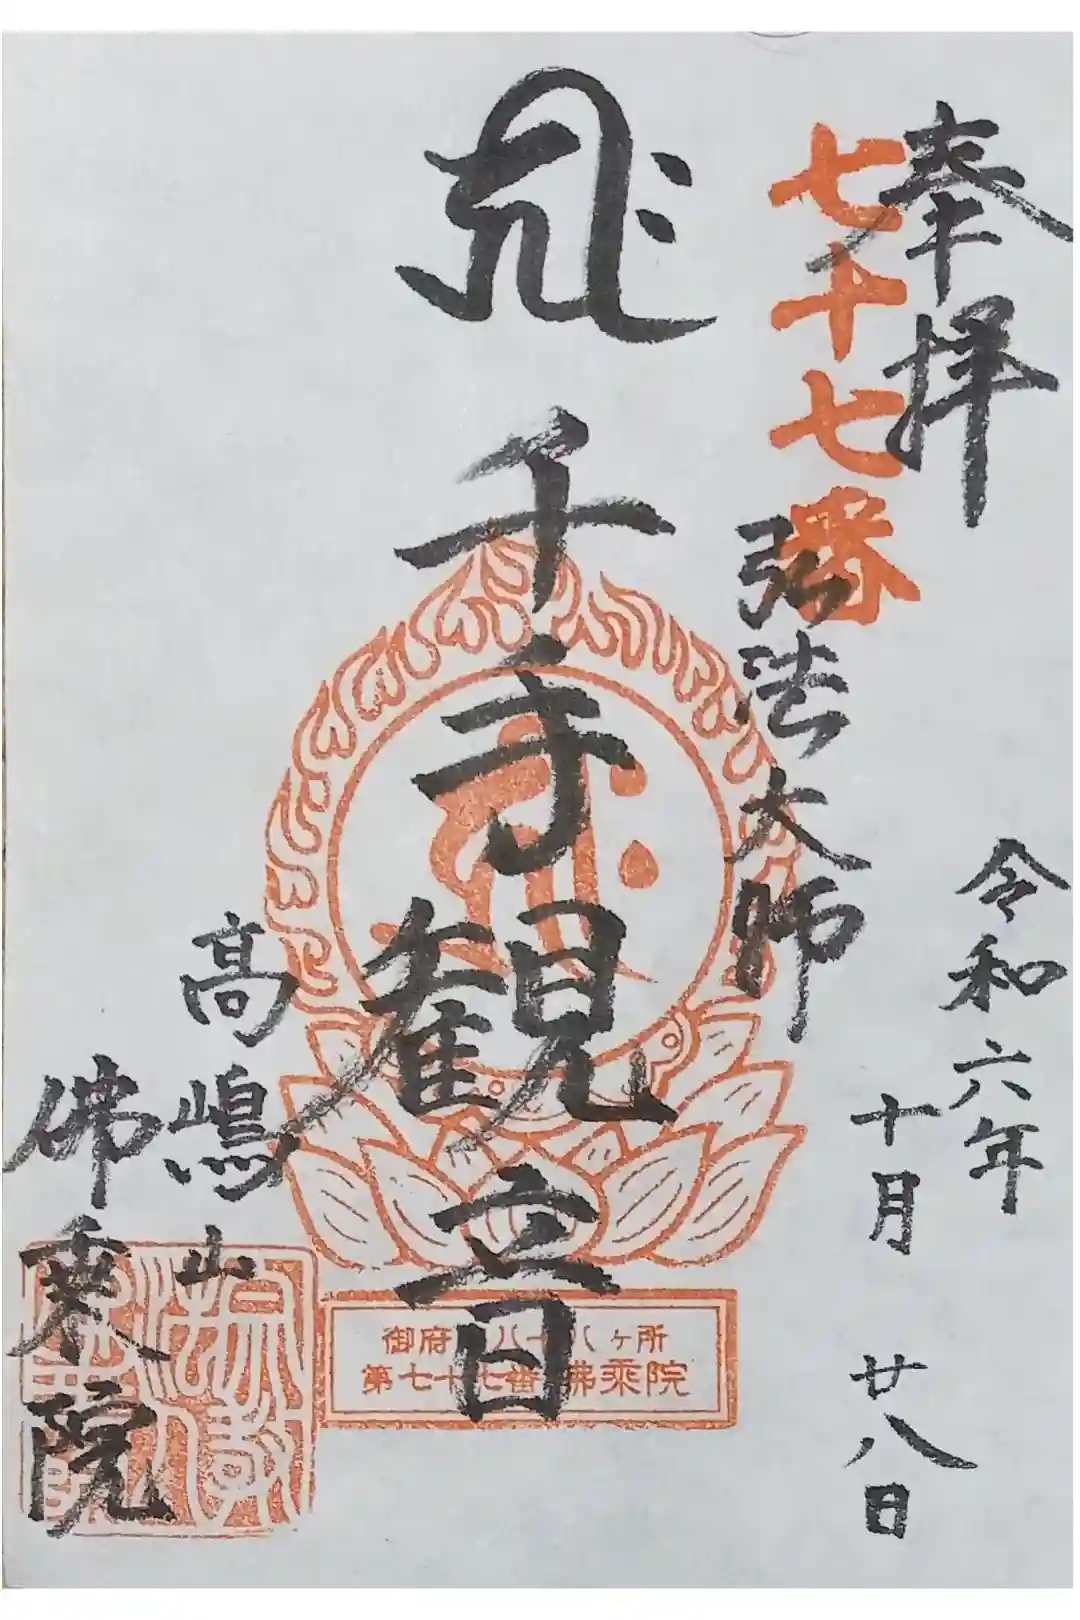 奉拝
七十七番
弘法大師
令和六年
十月廿八日
千手観音
御府 八十八ヶ所
第七十七番 佛乗院
高嶋山
佛乗院